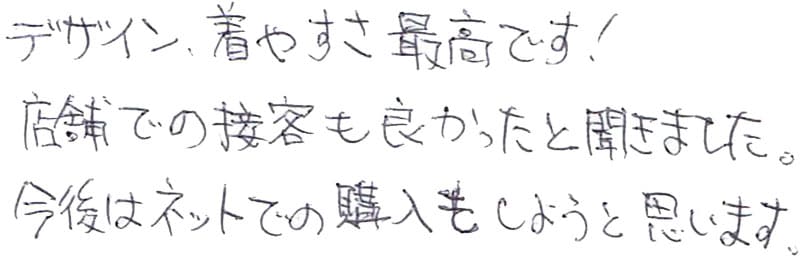 デザイン、着やすさ最高です!
店舗での接客も良かったと聞きました。
今後はネットでの購入もしようと思います。